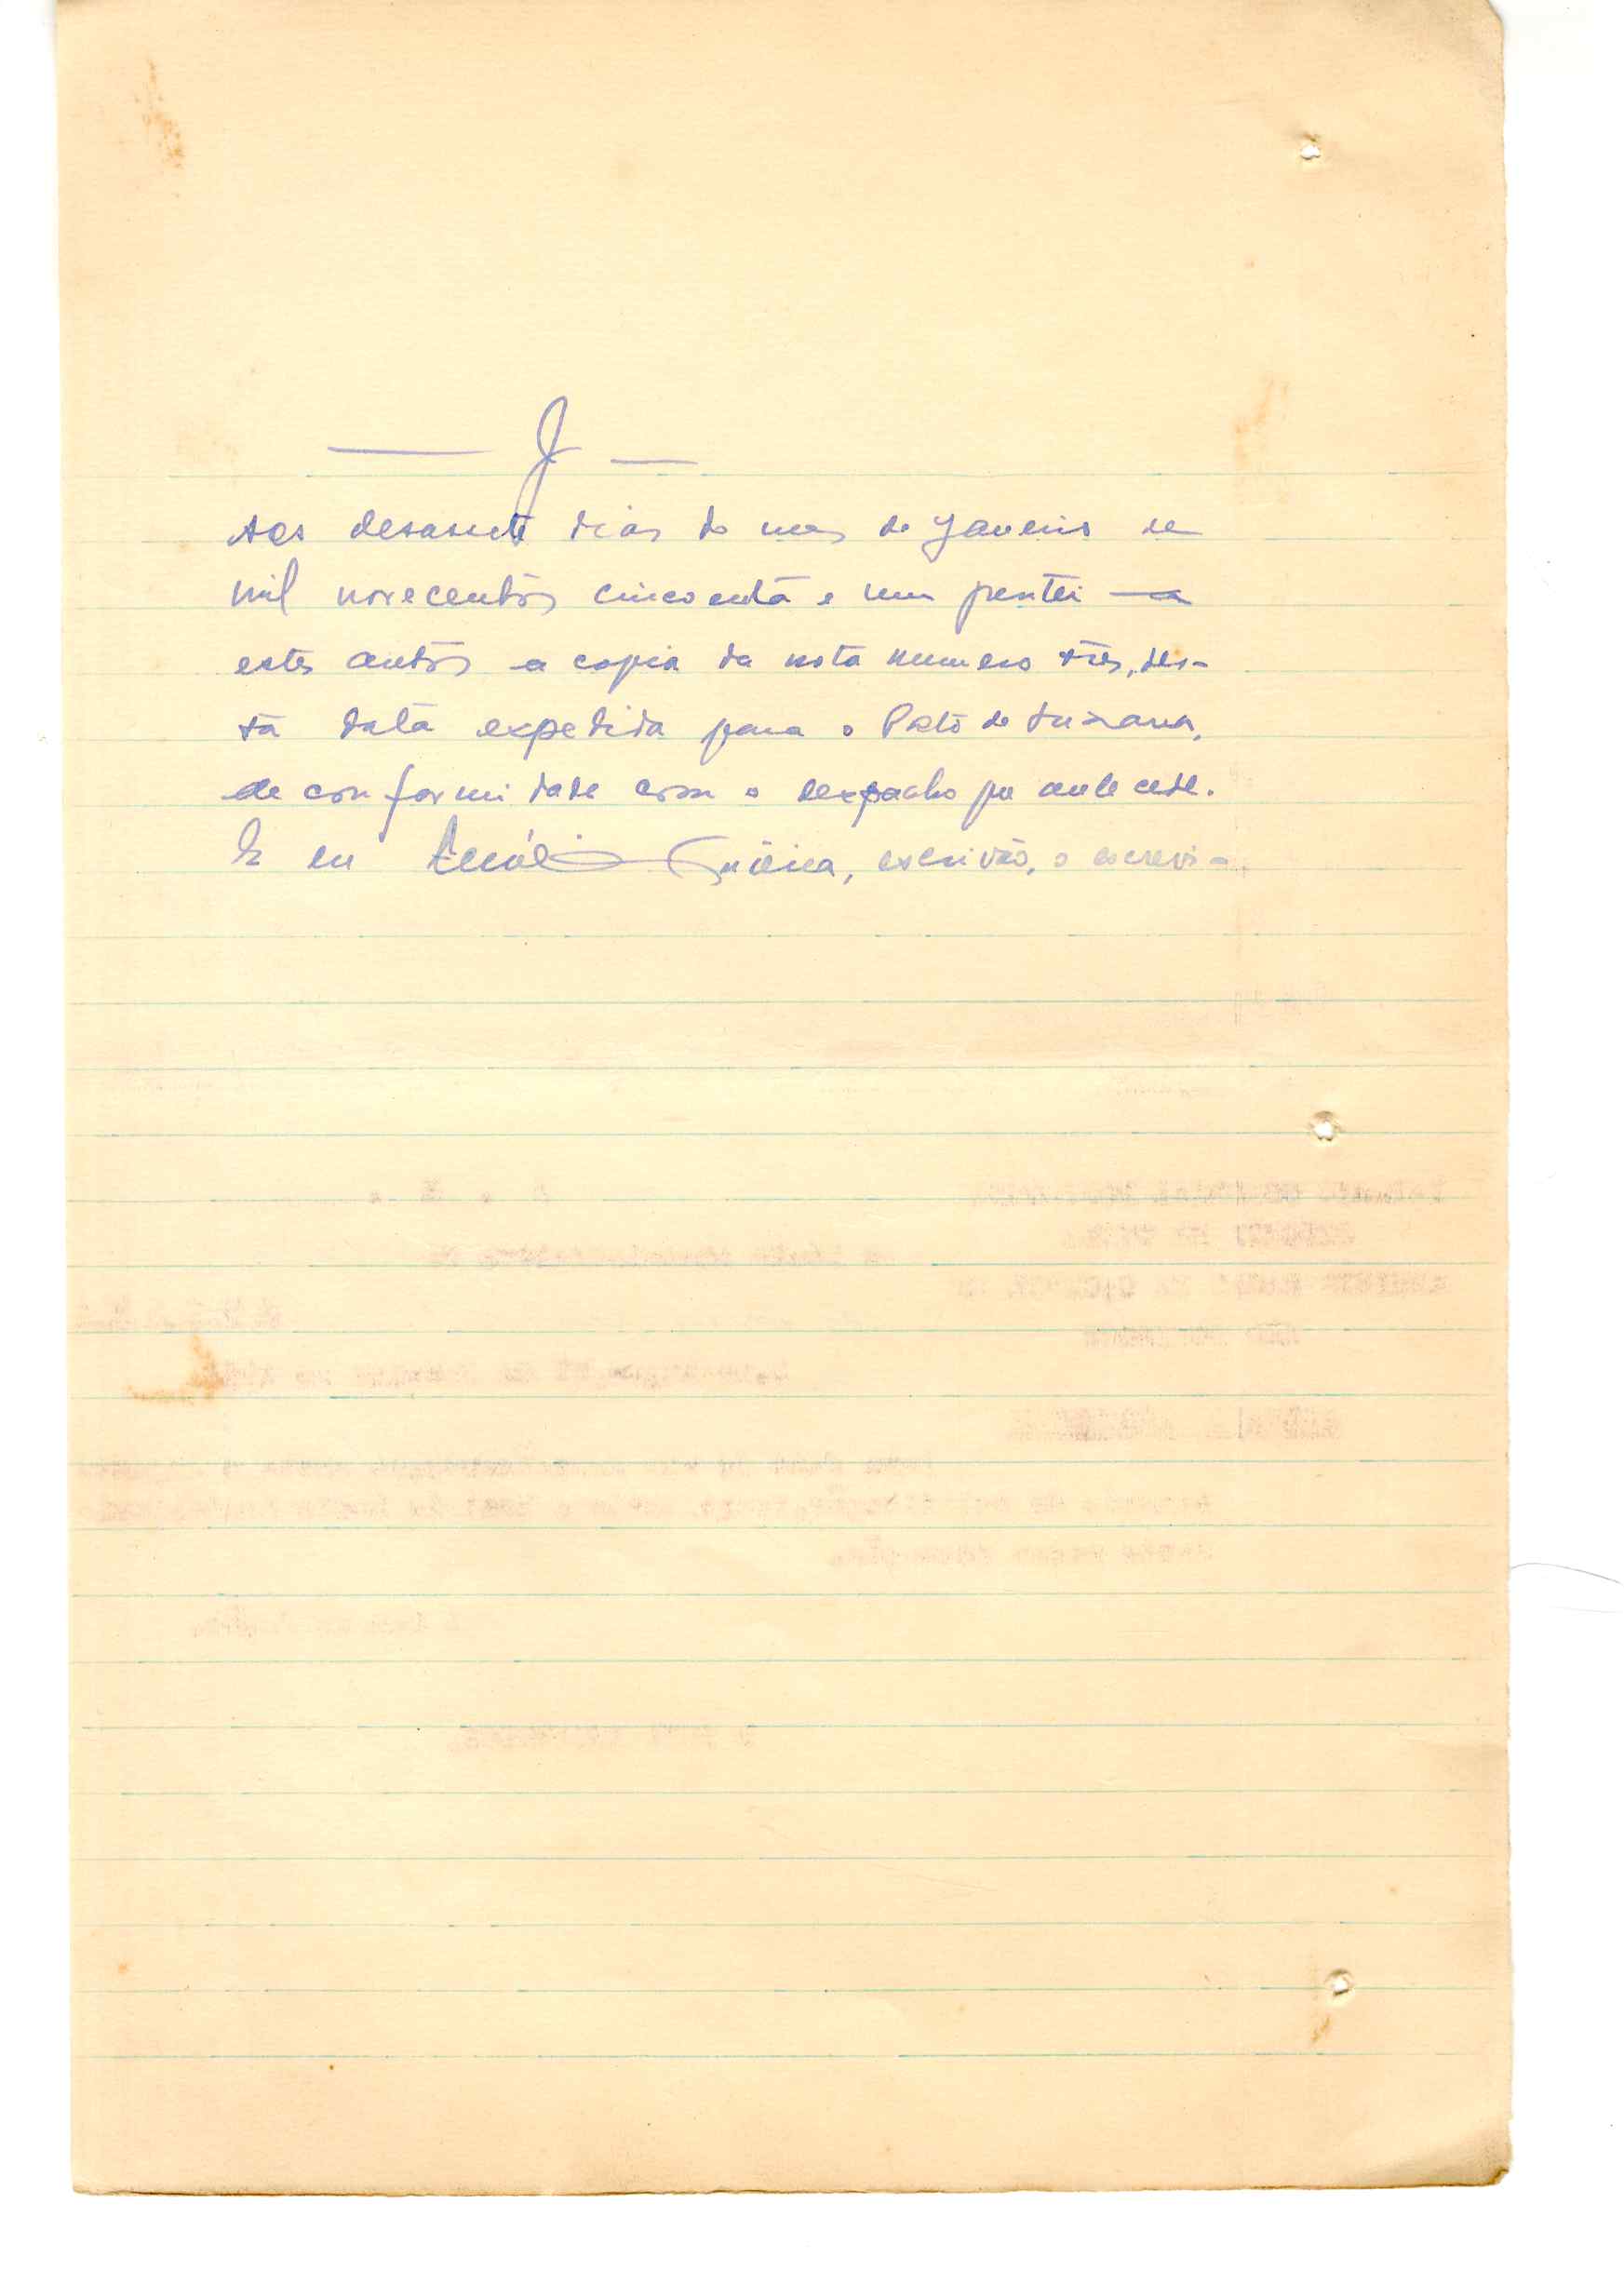 J
Aos desasete dias do mes de Janeiro de
mil novecentos cincoenta e um juntei a
estes autos a copia da nota numero três, des-
ta data expedida para o Posto de
de conformidade com o despacho que antecede.
E eu escrivão, o escrevi-